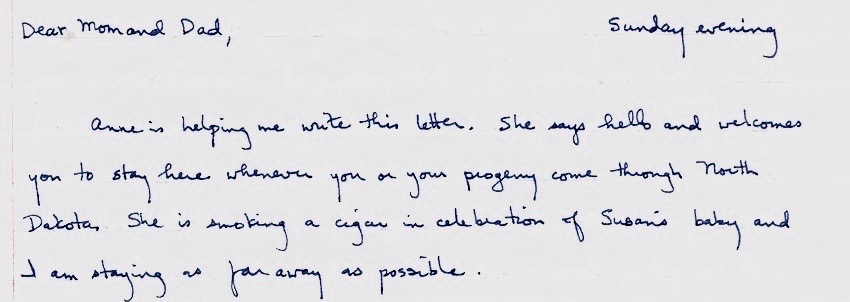 Dear Mom and Dad, Sunday evening
Anne is helping me write this letter. She says hello and welcomes
you to stay here whenever you or your progeny come through North
Dakota. She is smoking a cigar in celebration of Susan's baby and
I am staying as far away as possible.